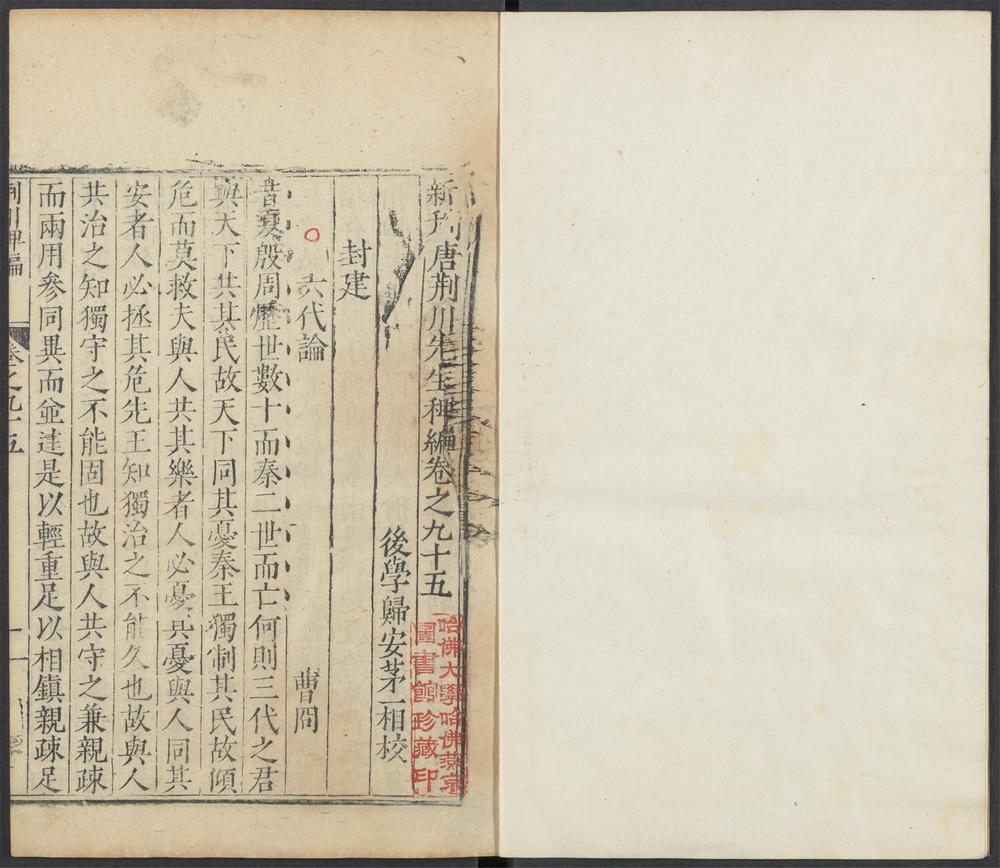 新刊唐荆川先生稗編卷之九十五
後學歸安茅一相校
封建
六代論 曹冏
昔夏殷周歷世數十而秦二世而亡何則三代之君
與天下共其民故天下同其憂秦王獨制其民故傾
危而莫救夫與人共其樂者人必憂其憂與人同其
安者人必拯其危先王知獨治之不能久也故與人
共治之知獨守之不能固也故與人共守之兼親疎
而兩用參同異而並進是以輕重足以相鎮親疎足
荆川稗編 卷之九十五 一
哈佛大學哈佛燕京
圖書館珍藏印